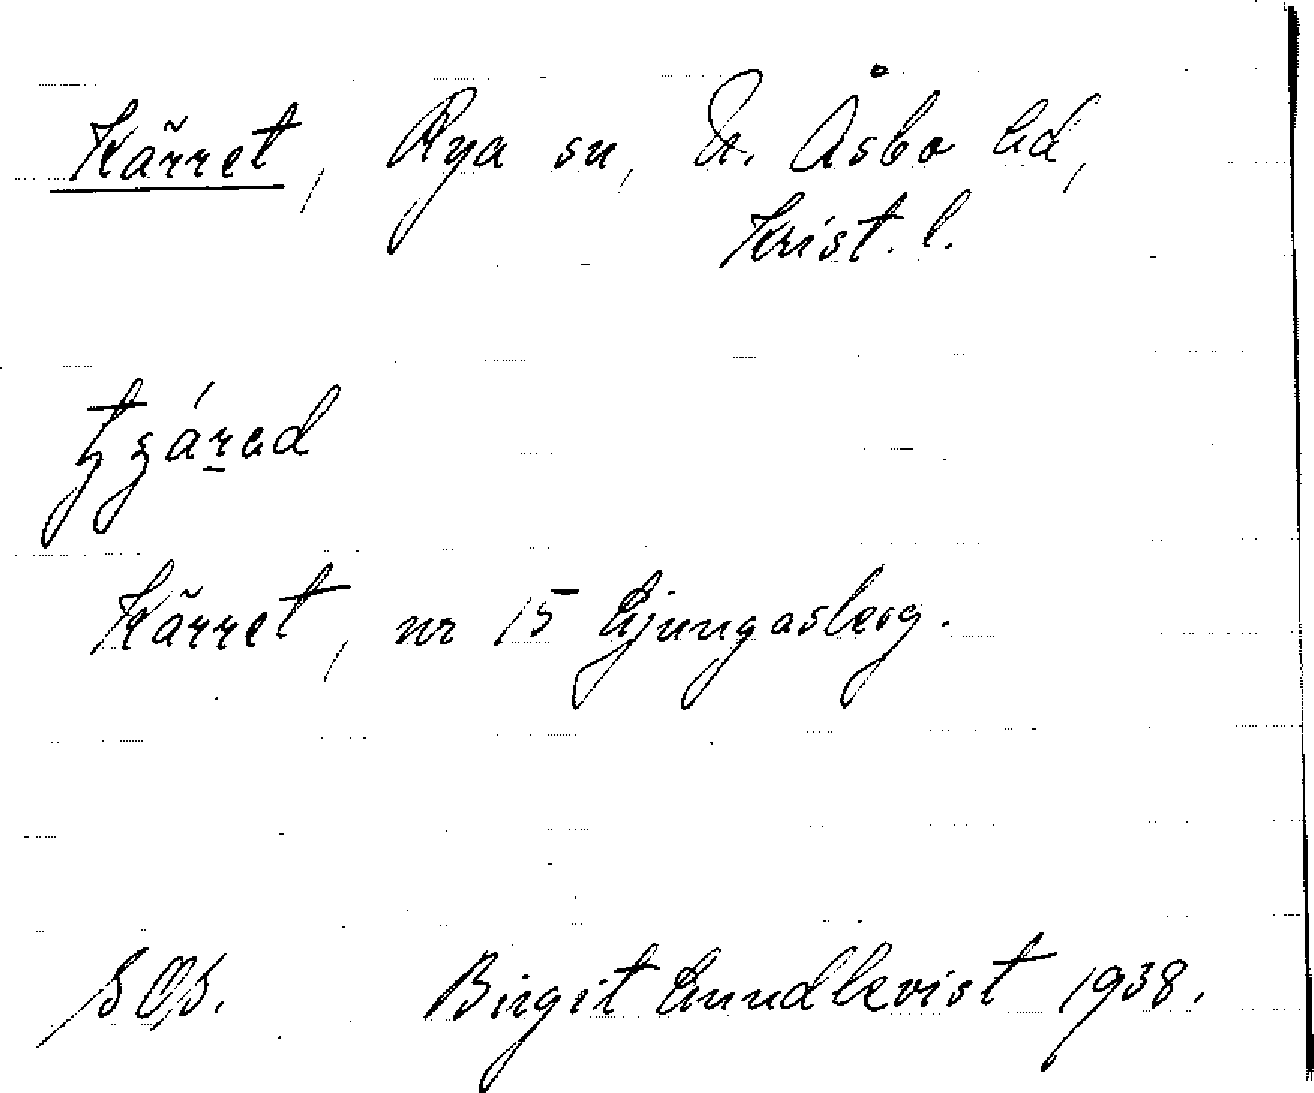 Kärret, Rya sn, N. Åsbo hd,
Krist. l.
Kärret, nr 15 Ljungasberg.
SOS. Birgit Lundkvist 1938.